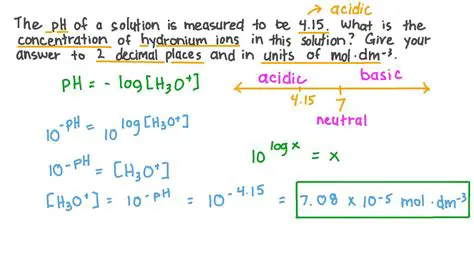 → acidic
The pH of a solution is measured to be 4.15. What is the
concentration of hydronium ions in this solution? Give your
answer to 2 decimal places and in units of mol·dm⁻³.
pH = - log[H₃O⁺]
acidic basic
4.15 7
neutral
10^-pH = 10^log[H₃O⁺]
10^log x = x
10^-pH = [H₃O⁺]
[H₃O⁺] = 10^-pH = 10^-4.15 = 7.08 × 10⁻⁵ mol·dm⁻³